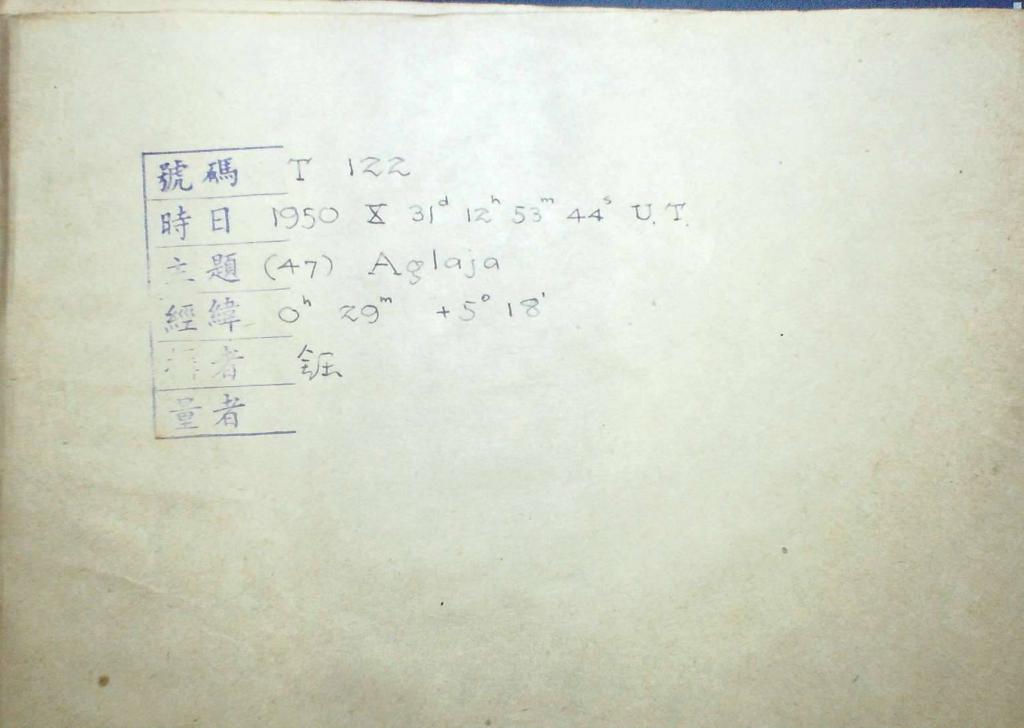 號碼 T 122
時日 1950 X 31d 12h 53m 44s U.T.
主題 (47) Aglaja
經緯 0h 29m +5° 18'
者 鈺
量者